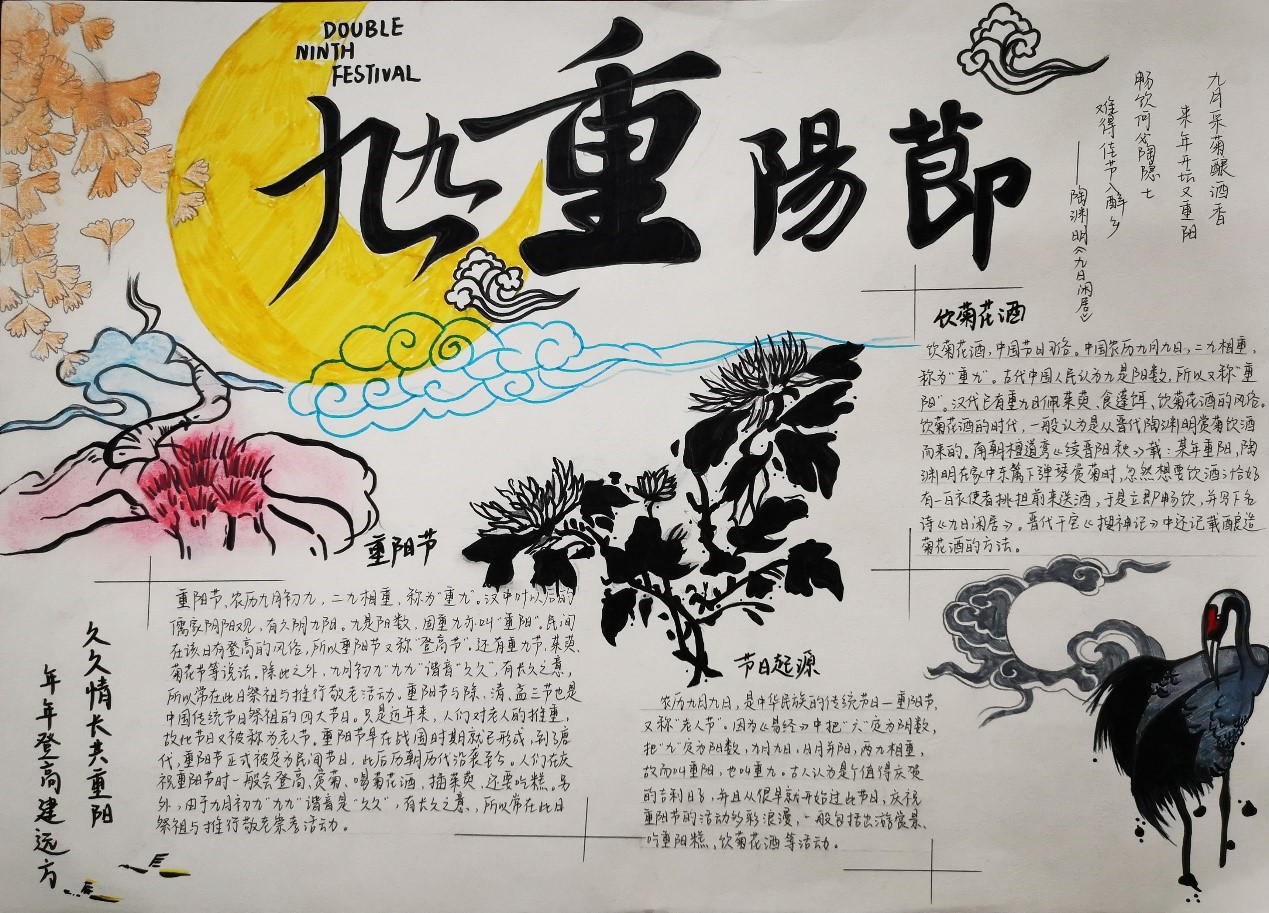 DOUBLE
NINTH
FESTIVAL
九九重陽節
九月采菊酿酒香
来年开坛又重阳
畅饮何必陶隐士
难得佳节入醉乡
——陶渊明《九日闲居》
饮菊花酒
饮菊花酒,中国节日习俗。中国农历九月九日,二九相重,
称为“重九”。古代中国人民认为九是阳数,所以又称“重
阳”。汉代已有重九日佩茱萸、食蓬饵、饮菊花酒的风俗。
饮菊花酒的时代,一般认为是从晋代陶渊明赏菊饮酒
而来的。南朝檀道鸾《续晋阳秋》载:某年重阳,陶
渊明在家中东篱下弹琴赏菊时,忽然想要饮酒;恰好
有一白衣使者挑担前来送酒,于是立即畅饮,并写下名
诗《九日闲居》。晋代干宝《搜神记》中还记载酿造
菊花酒的方法。
重阳节
重阳节,农历九月初九,二九相重,称为“重九”。汉中叶以后的
儒家阴阳观,有六阴九阳。九是阳数,固重九亦叫“重阳”。民间
在该日有登高的风俗,所以重阳节又称“登高节”。还有重九节、茱萸、
菊花节等说法。除此之外,九月初九“九九”谐音“久久”,有长久之意,
所以常在此日祭祖与推行敬老活动。重阳节与除、清、盂三节也是
中国传统节日祭祖的四大节日。只是近年来,人们对老人的推重,
故此节日又被称为老人节。重阳节早在战国时期就已形成,到了唐
代,重阳节正式被定为民间节日,此后历朝历代沿袭至今。人们在庆
祝重阳节时一般会登高、赏菊、喝菊花酒,插茱萸,还要吃糕。另
外,由于九月初九“九九”谐音是“久久”,有长久之意,所以常在此日
祭祖与推行敬老崇孝活动。
节日起源
农历九月九日,是中华民族的传统节日—重阳节,
又称“老人节”。因为《易经》中把“六”定为阴数,
把“九”定为阳数,九月九日,日月并阳,两九相重,
故而叫重阳,也叫重九。古人认为是个值得庆贺
的吉利日子,并且从很早就开始过此节日,庆祝
重阳节的活动多彩浪漫,一般包括出游赏景、
吃重阳糕、饮菊花酒等活动。
久久情长共重阳
年年登高建远方